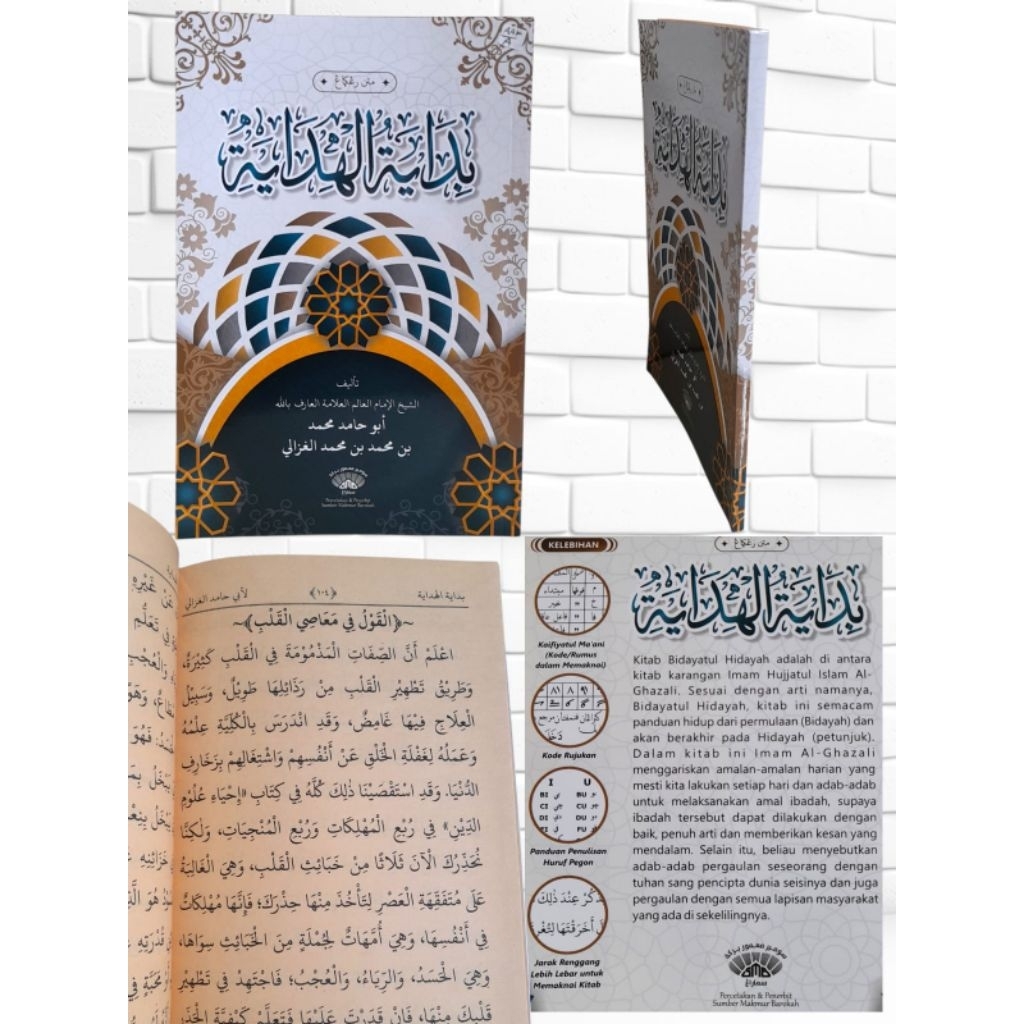 متن رڠڮاڠ
بِدَايَةُ الْهِدَايَةِ
تأليف
الشيخ الإمام العالم العلامة العارف بالله
أبو حامد محمد
بن محمد بن محمد الغزالي
Percetakan & Penerbit
Sumber Makmur Barokah
بِدَايَةُ الْهِدَايَةِ
بداية الهداية ﴿١٠٤﴾ لأبي حامد الغزالي
~﴿الْقَوْلُ فِي مَعَاصِي الْقَلْبِ﴾~
اعْلَمْ أَنَّ الصِّفَاتِ الْمَذْمُوْمَةَ فِي الْقَلْبِ كَثِيْرَةٌ،
وَطَرِيْقُ تَطْهِيْرِ الْقَلْبِ مِنْ رَذَائِلِهَا طَوِيْلٌ، وَسَبِيْلُ
الْعِلَاجِ فِيْهَا غَامِضٌ، وَقَدِ انْدَرَسَ بِالْكُلِّيَّةِ عِلْمُهُ
وَعَمَلُهُ لِغَفْلَةِ الْخَلْقِ عَنْ أَنْفُسِهِمْ وَاشْتِغَالِهِمْ بِزَخَارِفِ
الدُّنْيَا. وَقَدِ اسْتَقْصَيْنَا ذٰلِكَ كُلَّهُ فِي كِتَابِ «إِحْيَاءِ عُلُوْمِ
الدِّيْنِ» فِي رُبُعِ الْمُهْلِكَاتِ وَرُبُعِ الْمُنْجِيَاتِ، وَلَكِنَّا
نُحَذِّرُكَ الْآنَ ثَلَاثًا مِنْ خَبَائِثِ الْقَلْبِ، وَهِيَ الْغَالِبَةُ
عَلَى مُتَفَقِّهَةِ الْعَصْرِ لِتَأْخُذَ مِنْهَا حِذْرَكَ؛ فَإِنَّهَا مُهْلِكَاتٌ
فِي أَنْفُسِهَا، وَهِيَ أُمَّهَاتٌ لِجُمْلَةٍ مِنَ الْخَبَائِثِ سِوَاهَا،
وَهِيَ الْحَسَدُ، وَالرِّيَاءُ، وَالْعُجْبُ؛ فَاجْتَهِدْ فِي تَطْهِيْرِ
قَلْبِكَ مِنْهَا، فَإِنْ قَدَرْتَ عَلَيْهَا فَتَعَلَّمْ كَيْفِيَّةَ الْحَذَرِ
KELEBIHAN
Kaifiyatul Ma'ani
(Kode/Rumus
dalam Memaknai)
Kode Rujukan
I U
BI بي BU بو
CI چي CU چو
DI دي DU دو
FI في FU فو
Panduan Penulisan
Huruf Pegon
Jarak Renggang
Lebih Lebar untuk
Memaknai Kitab
متن رڠڮاڠ
بِدَايَةُ الْهِدَايَةِ
Kitab Bidayatul Hidayah adalah di antara
kitab karangan Imam Hujjatul Islam Al-
Ghazali. Sesuai dengan arti namanya,
Bidayatul Hidayah, kitab ini semacam
panduan hidup dari permulaan (Bidayah) dan
akan berakhir pada Hidayah (petunjuk).
Dalam kitab ini Imam Al-Ghazali
menggariskan amalan-amalan harian yang
mesti kita lakukan setiap hari dan adab-adab
untuk melaksanakan amal ibadah, supaya
ibadah tersebut dapat dilakukan dengan
baik, penuh arti dan memberikan kesan yang
mendalam. Selain itu, beliau menyebutkan
adab-adab pergaulan seseorang dengan
tuhan sang pencipta dunia seisinya dan juga
pergaulan dengan semua lapisan masyarakat
yang ada di sekelilingnya.
Percetakan & Penerbit
Sumber Makmur Barokah